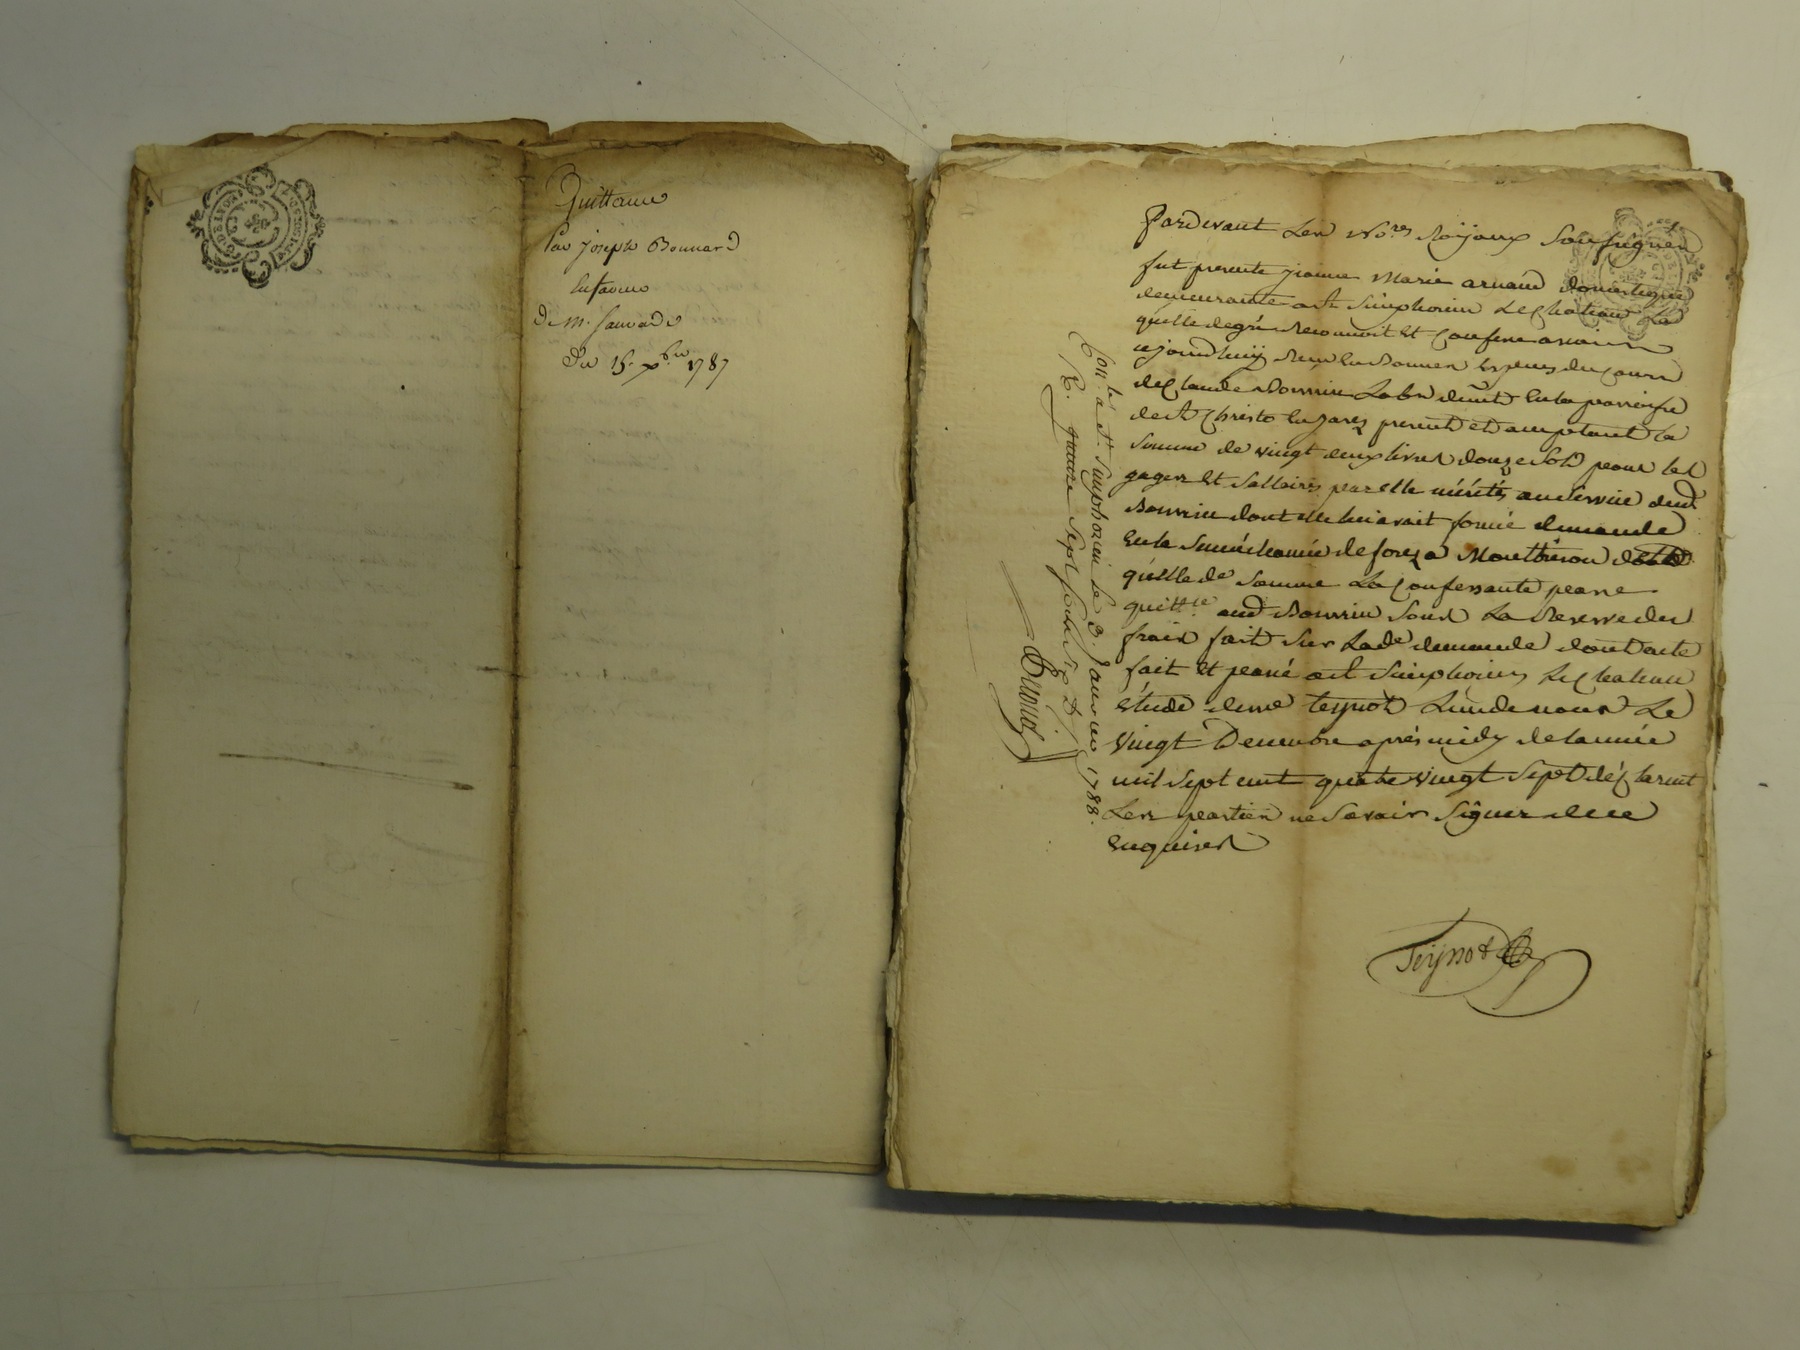 Quittance
Par joseph Bonnard
en faveur
De m. sauvade
Du 15. xbre 1787
Pardevant Les No.res Royaux Soussignés
fut presente jeanne Marie arnaud domestique
demeurante a st Simphorien Le Chateau La
quelle de gré reconnoit et Confesse avoir
cejourdhuy reçu en Bonnes Especes du cours
de Claude Bonnier Lab.r dem.t en la parroisse
de st Christo en jarez present et acceptant la
somme de vingt deux livres douze sols pour les
gages et sallaires par elle mérités au service dud.
Bonnier dont elle lui avait formé demande
en la sénéchaussée de forez a Montbrison de la
quelle de somme La Confessante passe
quitt.ce aud Bonnier sous La Reserve des
frais fait sur La de demande dont acte
fait et passé a st Simphorien Le Chateau
étude de me Teynot L'un de nous Le
vingt Décembre après midy de l'année
mil sept cent quatre vingt sept déclarent
Les parties ne savoir signer de ce
enquises
Teynot
Con.lé a st. Simphorien le 3. Janvier 1788.
R. quinze sept sols six d